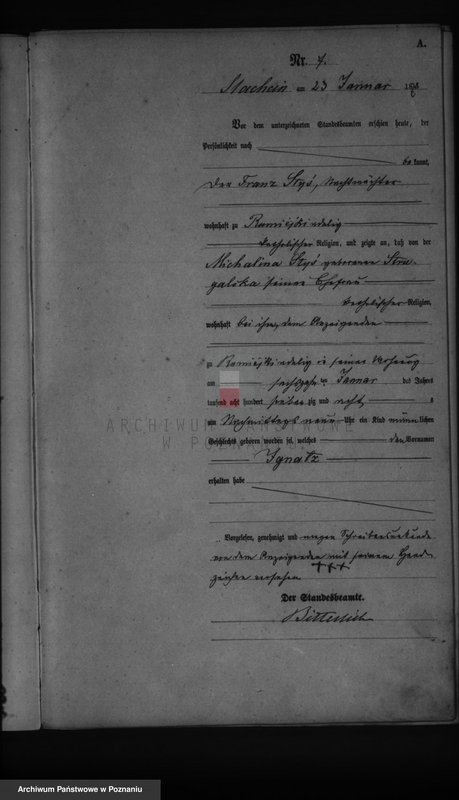 A.
Nr. 7.
am 23 Januar 187
Vor dem unterzeichneten Standesbeamten erschien heute, der
Persönlichkeit nach
be kannt,
Der Franz Styś, Nachtwächter
wohnhaft zu
katholischer Religion, und zeigte an, daß von der
Michalina Styś geborenen Stru-
galska seiner Ehefrau
katholischer Religion,
wohnhaft bei ihm, dem Anzeigenden
zu in seiner Wohnung
am ten Januar des Jahres
tausend acht hundert sieben zig und acht
um Nachmittags neun Uhr ein Kind männlichen
Geschlechts geboren worden sei, welches den Vornamen
Ignatz
erhalten habe
Vorgelesen, genehmigt und wegen
von dem Anzeigenden mit seinem Hand-
zeichen versehen
+++
Der Standesbeamte.
ARCHIWUM PAŃSTWOWE
W POZNANIU
Archiwum Państwowe w Poznaniu